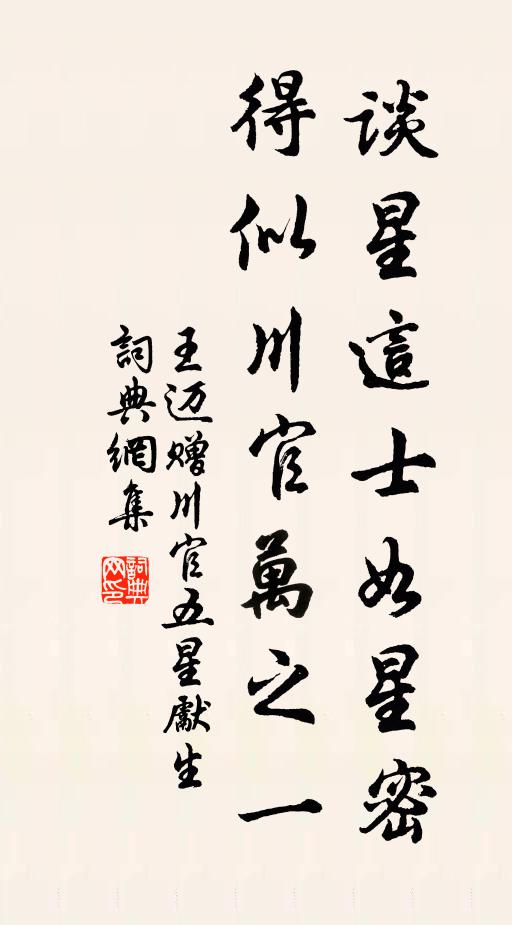 談星這士如星密
得似川官萬之一
王迈赠川官五星獻生
詞典網集
詞典网印